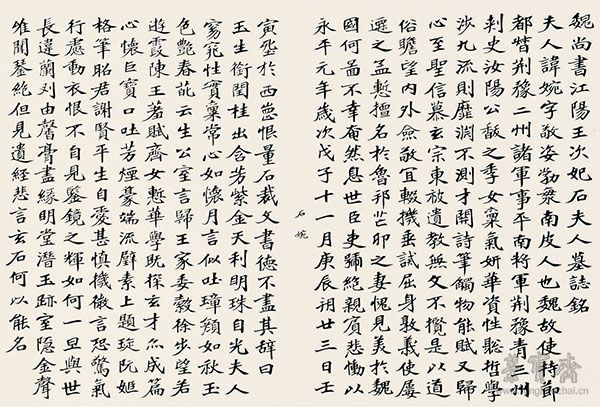 魏尚書江陽王次妃石夫人墓誌銘
夫人諱婉字敬姿勃海南皮人也魏故使持節
都督荊豫二州諸軍事平南將軍荊豫青三州
刺史汝陽公馥之季女稟氣妍華資性聡哲學
涉九流則靡淵不測才關詩筆觸物能賦又歸
心至聖信慕玄宗東放遺教無文不攬是以道
俗瞻望內外僉敬宜輟機垂試屈身敦義使屢
遷之孟慙擅名於魯邦芒卯之妻愧見美於魏
國何啚不幸奄然息世臣吏號絕親賓悲慟以
永平元年歲次戊子十一月庚辰朔廿三日壬
石婉
寅垩於西崗恨量石裁文書德不盡其辭曰
玉生銜閏桂出含芳紫金天利明珠自光夫人
窈窕性實稟常心如懷月言似吐璋顏如秋玉
色艷春芘云生公室言歸王家委毅徐步望若
遊霞陳王著賦齊女慙華學既探玄才亦成篇
心懷巨寶口吐芳煙豪端流璧素上題琁阮嫗
格筆昭君謝賢平生自愛甚慎機微言恐驚氣
行慮動衣恨不自見鑒鏡之輝如何一旦與世
長違蘭刈由馨膏盡緣明堂潛玉跡室隱金聲
唯聞琴絕但見遺經悲言玄石何以能名